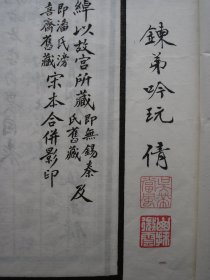 鍊弟吟玩 倩
綽以故宮所藏即無錫秦氏舊藏及
即潘氏滂喜齋舊藏宋本合併影印